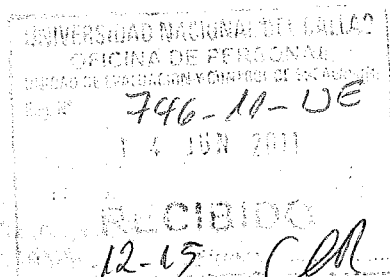 UNIVERSIDAD NACIONAL DEL CALLAO
OFICINA DE PERSONAL
UNIDAD DE EVALUACION Y CONTROL DE ESCALAFON
Reg. Nº 746-11-UE
14 JUN 2011
RECIBIDO
12-15